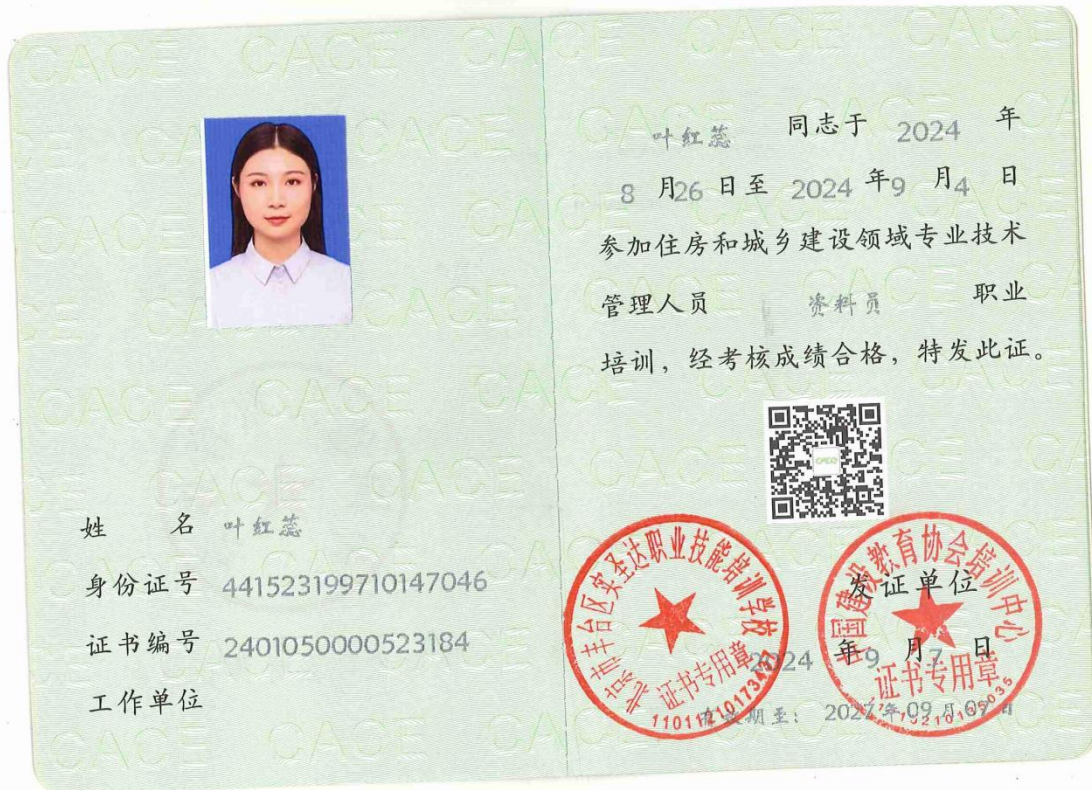 姓 名 叶红蕊
身份证号 441523199710147046
证书编号 2401050000523184
工作单位
叶红蕊 同志于 2024 年
8 月 26 日至 2024 年 9 月 4 日
参加住房和城乡建设领域专业技术
管理人员 资料员 职业
培训，经考核成绩合格，特发此证。
发证单位
2024 年 9 月 7 日
有效期至： 2027年09月07日
北京市丰台区实圣达职业技能培训学校
证书专用章
中国建设教育协会培训中心
证书专用章
CACE